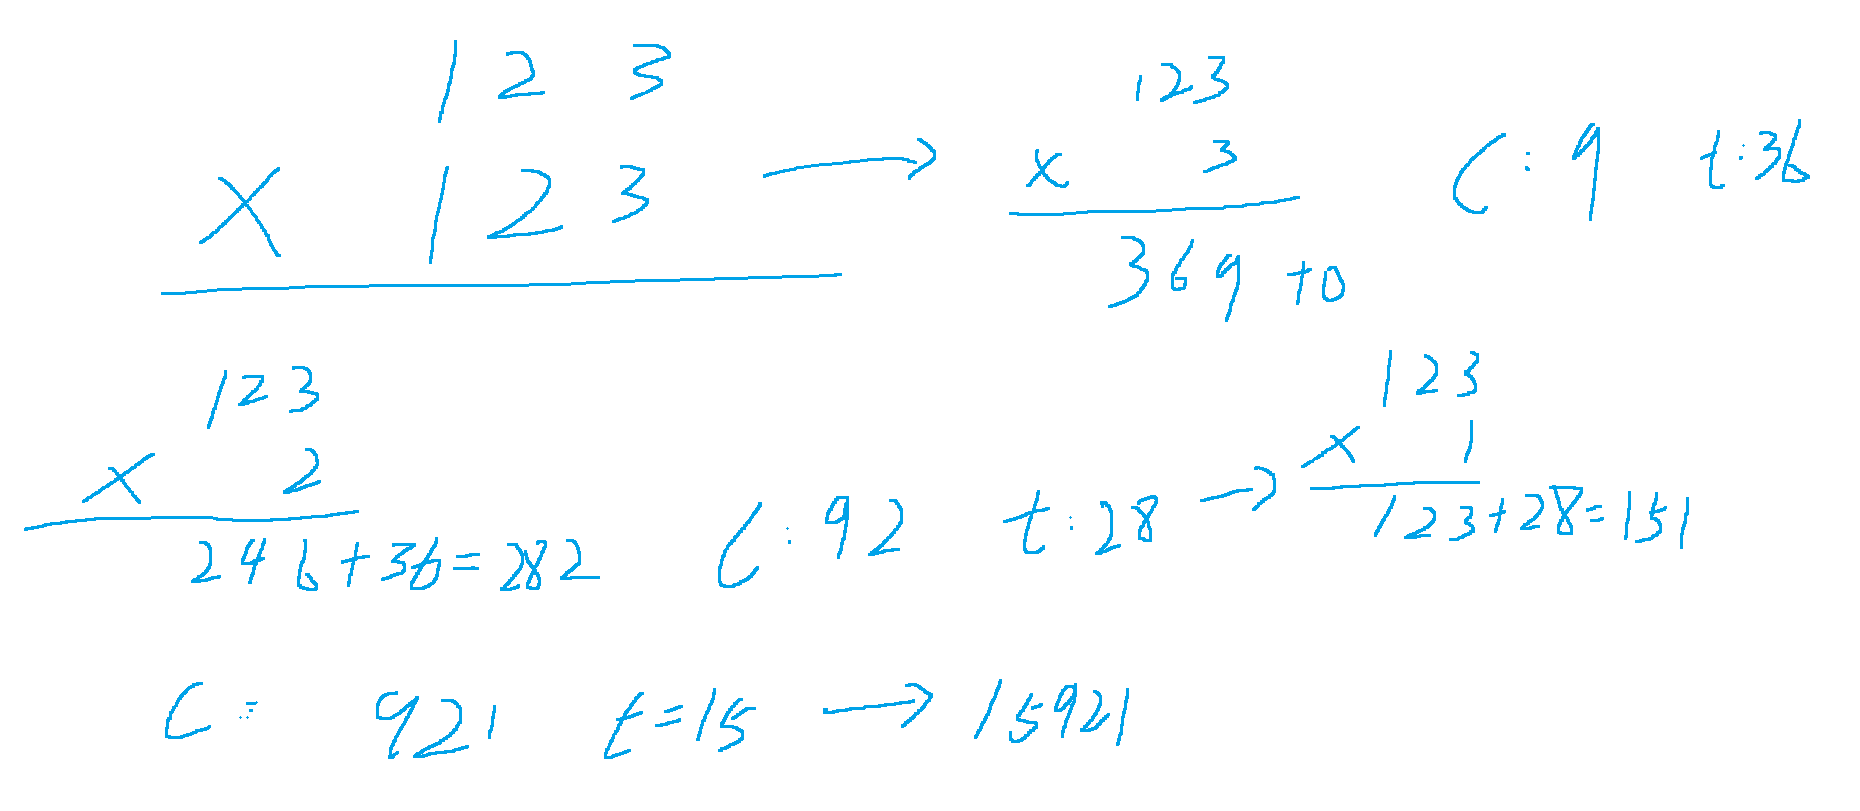 1 2 3
× 1 2 3 →
123
× 3
369 +0
C: 9 t:36
123
× 2
246+36=282
C: 92 t:28 →
123
× 1
123+28=151
C= 921 t=15 → 15921